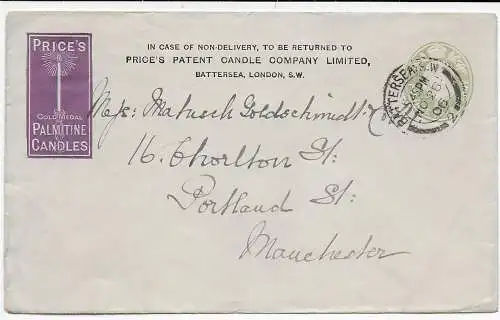 PRICE'S
GOLD MEDAL
PALMITINE
CANDLES
IN CASE OF NON-DELIVERY, TO BE RETURNED TO
PRICE'S PATENT CANDLE COMPANY LIMITED,
BATTERSEA, LONDON, S.W.
BATTERSEA S.W
06
2
Mess: Matusch Goldschmidt
16. Chorlton St:
Portland St:
Manchester